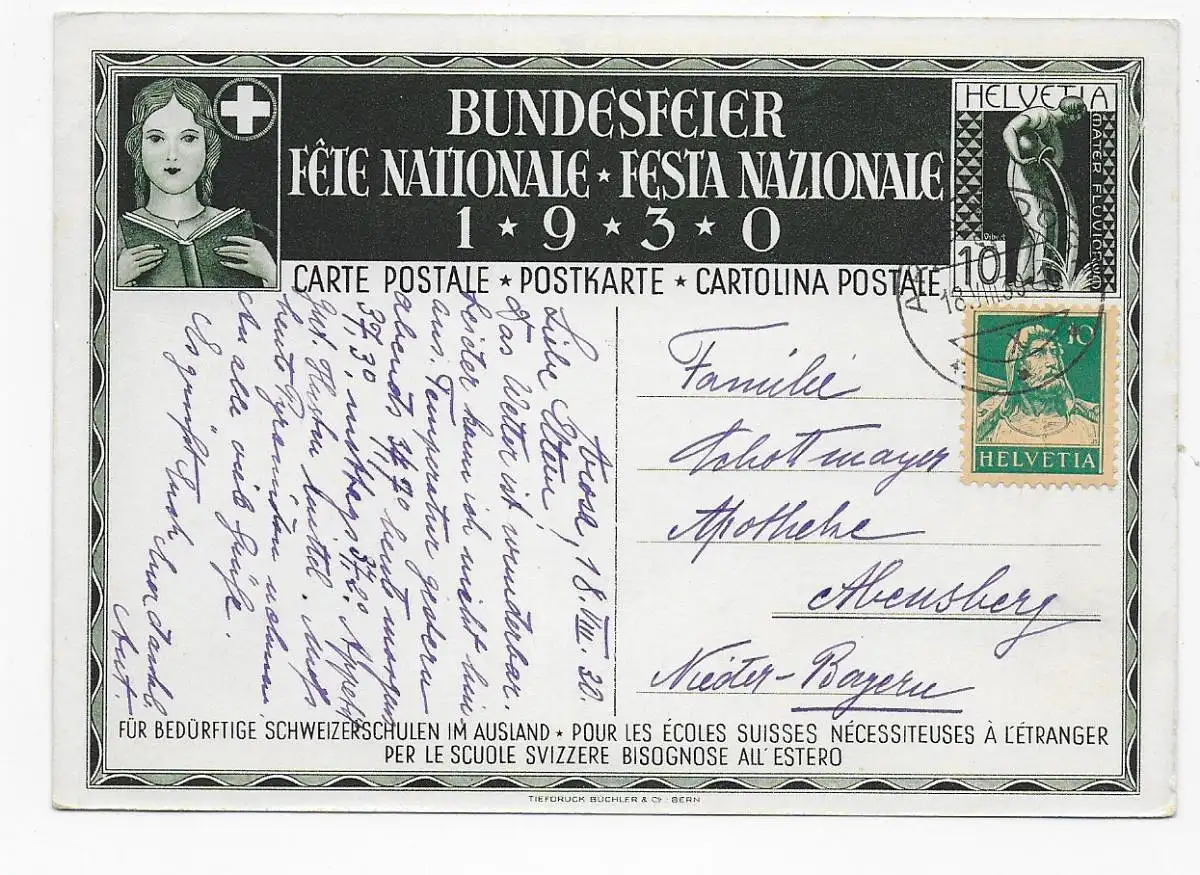 BUNDESFEIER
FÊTE NATIONALE ★ FESTA NAZIONALE
1 ★ 9 ★ 3 ★ 0
CARTE POSTALE ★ POSTKARTE ★ CARTOLINA POSTALE
HELVETIA
MATER FLUVIORUM
10
18.VIII.30
10
HELVETIA
Familie
Schottmayer
Apotheke
Abensberg
Nieder-Bayern
Arosa, 18. VIII. 30.
Liebe Eltern!
Das Wetter ist wunderbar.
Leider kann ich nicht hin
aus. Temperatur gestern
abends heute morgen
37,30, mittags 37,20. Appetit
gut. Husten mittel. Muß
heute Pyramidon nehmen.
An alle viele Grüße.
Es grüßt Euch Euer dankb.
FÜR BEDÜRFTIGE SCHWEIZERSCHULEN IM AUSLAND ★ POUR LES ÉCOLES SUISSES NÉCESSITEUSES À L'ÉTRANGER
PER LE SCUOLE SVIZZERE BISOGNOSE ALL'ESTERO
TIEFDRUCK BÜCHLER & Co. BERN